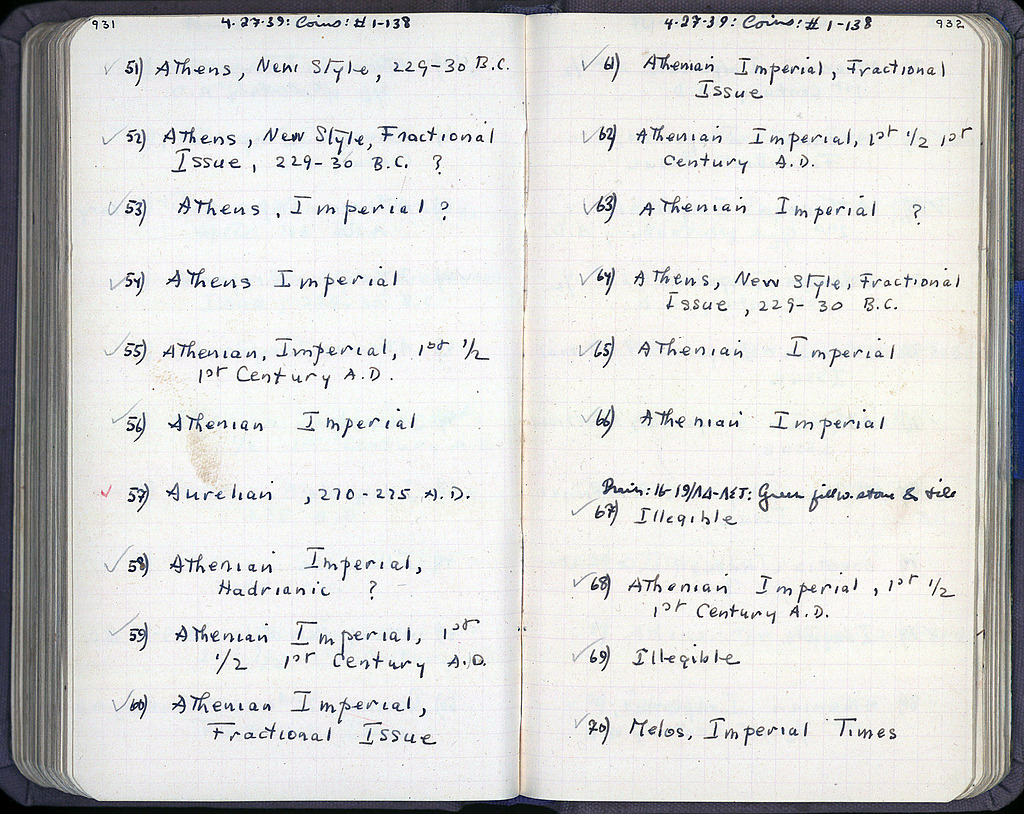 931
4-27-39: Coins: # 1-138
51) Athens, New Style, 229-30 B.C.
52) Athens, New Style, Fractional
Issue, 229-30 B.C. ?
53) Athens, Imperial ?
54) Athens Imperial
55) Athenian, Imperial, 1st 1/2
1st Century A.D.
56) Athenian Imperial
57) Aurelian, 270-275 A.D.
58) Athenian Imperial,
Hadrianic ?
59) Athenian Imperial, 1st
1/2 1st Century A.D.
60) Athenian Imperial,
Fractional Issue
4-27-39: Coins: # 1-138
932
61) Athenian Imperial, Fractional
Issue
62) Athenian Imperial, 1st 1/2 1st
Century A.D.
63) Athenian Imperial ?
64) Athens, New Style, Fractional
Issue, 229-30 B.C.
65) Athenian Imperial
66) Athenian Imperial
: 16-19/: Green fill w. stone & tile
67) Illegible
68) Athenian Imperial, 1st 1/2
1st Century A.D.
69) Illegible
70) Melos, Imperial Times